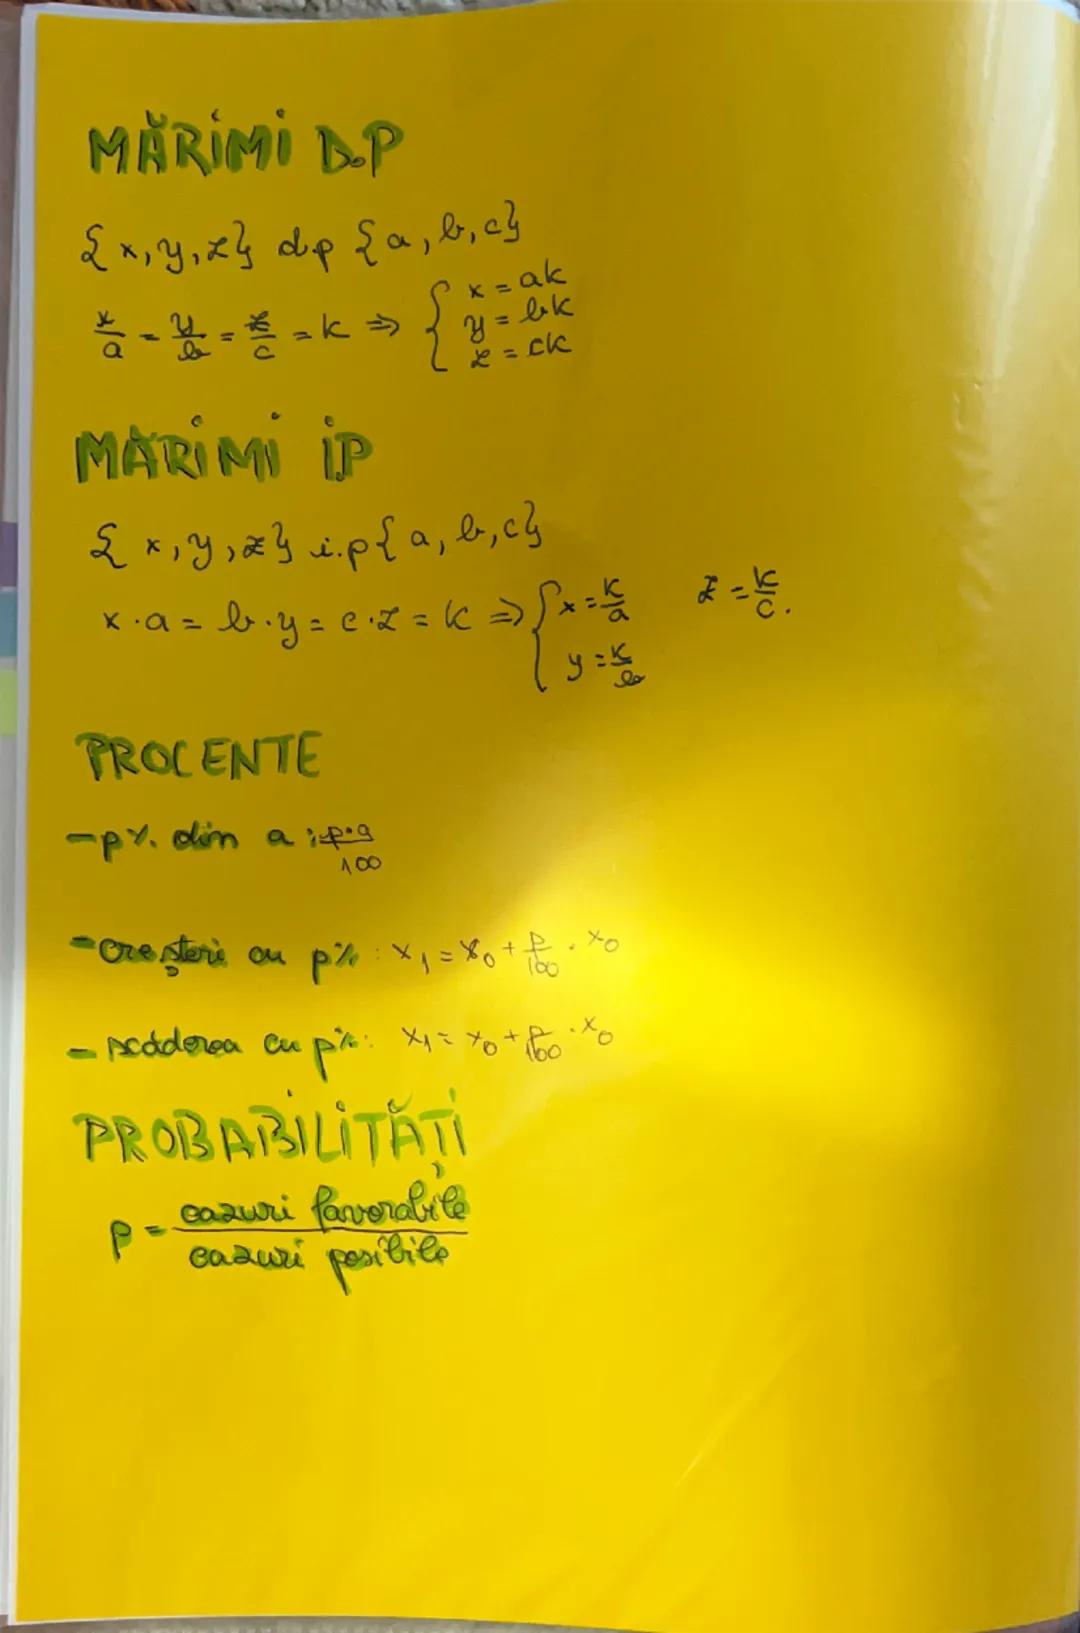 MĂRIMI D.P
{x, y, z} d.p {a, b, c}
x/a = y/b = z/c = k ⇒ { x = ak
y = bk
z = ck
MĂRIMI I.P
{x, y, z} i.p {a, b, c}
x·a = b·y = c·z = k ⇒ { x = k/a z = k/c.
y = k/b
PROCENTE
-p% din a : p·a/100
-creșteri cu p% : x₁ = x₀ + p/100 · x₀
- scăderea cu p%: x₁ = x₀ + p/100 · x₀
PROBABILITĂȚI
p = cazuri favorabile
cazuri posibile